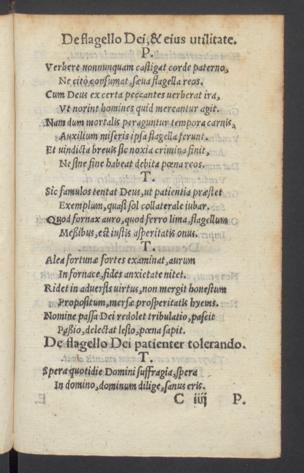 De flagello Dei, & eius utilitate.
P.
Verbere nonnunquam castigat corde paterno,
Ne citò consumat, sæua flagella reos.
Cum Deus ex certa peccantes uerberat ira,
Vt norint homines quid mercantur agit.
Nam dum mortalis peraguntur tempora carnis,
Auxilium miseris ipsa flagella ferunt.
Et uindicta breuis sic noxia crimina finit,
Ne sine fine habeat debita pœna reos.
T.
Sic famulos tentat Deus, ut patientia præstet
Exemplum, quasi sol collaterale iubar.
Quod fornax auro, quod ferro lima, flagellum
Messibus, est iustis asperitatis onus.
T.
Alea fortunæ fortes examinat, aurum
In fornace, fides anxietate nitet.
Ridet in aduersis uirtus, non mergit honestum
Propositum, mersæ prosperitatis hyems.
Nomine passa Dei redolet tribulatio, pascit
Passio, delectat læsio, pœna sapit.
De flagello Dei patienter tolerando.
T.
Spera quotidie Domini suffragia, spera
In domino, dominum dilige, sanus eris.
C iiij P.